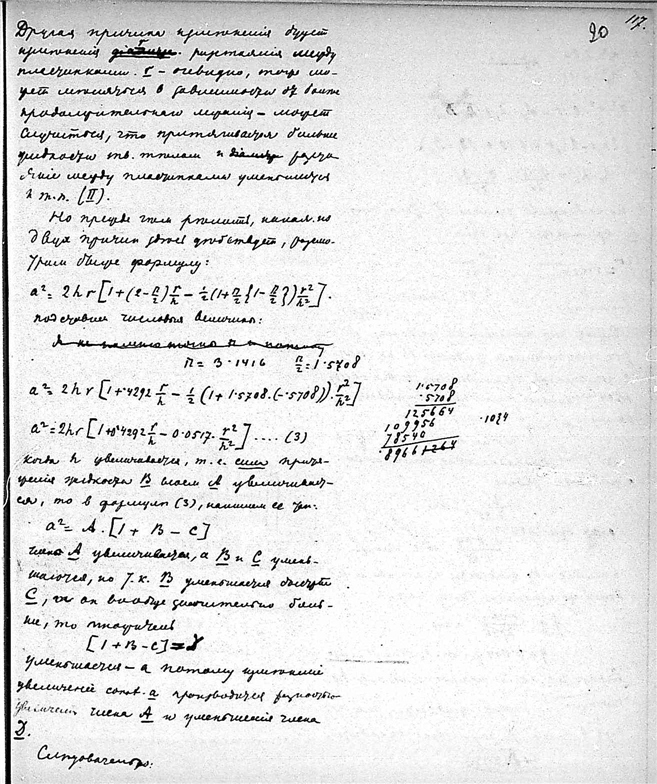 117.
20
Другая причина измѣненія будетъ
измѣненія разстоянія между
пластинками. r – очевидно, тоже мо-
жетъ мѣняться в зависимости от болѣе
продолжительнаго – можетъ
случиться, что притягивается больше
жидкости и разсто
яніе между пластинками уменьшится
и т.п. (II).
Но прежде чѣмъ рѣшить, какая из
двухъ причин здѣсь дѣйствуетъ, разсмо-
тримъ формулу:
a² = 2hr[1+(2-π/2)r/h - ½(1+π/2{1-π/2})r²/h²].
подставив числовыя величины:
π = 3·1416 π/2 = 1·5708
a² = 2hr[1+·4292 r/h - ½(1+1·5708·(-·5708))·r²/h²]
1·5708
·5708
125664
109956 ·1034
78540
·89661264
a² = 2hr[1+0·4292 r/h - 0·0517·r²/h²] .... (3)
когда h увеличивается, т.е. сила притя-
женія жидкости B тѣлом A увеличивает-
ся, то в формулѣ (3), напишем ее так:
a² = A.[1 + B – C]
члены A увеличивается, а B и C умень-
шаются, но т.к. B уменьшается быстрѣе
C, он вообще значительно боль-
ше, то множитель
[1+B–C] = D
уменьшается – а потому измѣненіе
увеличенія a производится разностью
увеличен. члена A и уменьшенія члена
D.
Слѣдовательно: